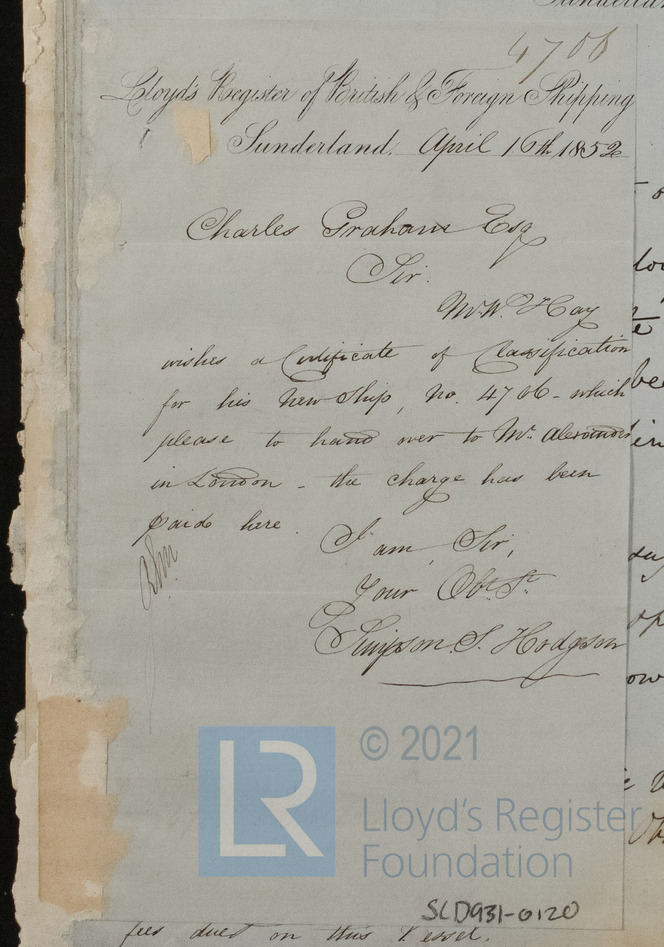 4706
Lloyd's Register of British & Foreign Shipping
Sunderland. April 16th 1852
Charles Graham Esq
Sir.
Mr. W. Hay
wishes a Certificate of Classification
for his New Ship, no. 4706 - which
please to hand over to Mr. Alexander
in London - the charge has been
paid here.
I am, Sir,
Your Obt. St.
Simpson. S. Hodgson
LR
© 2021
Lloyd's Register
Foundation
SLD931-0120
fees due on this Vessel.